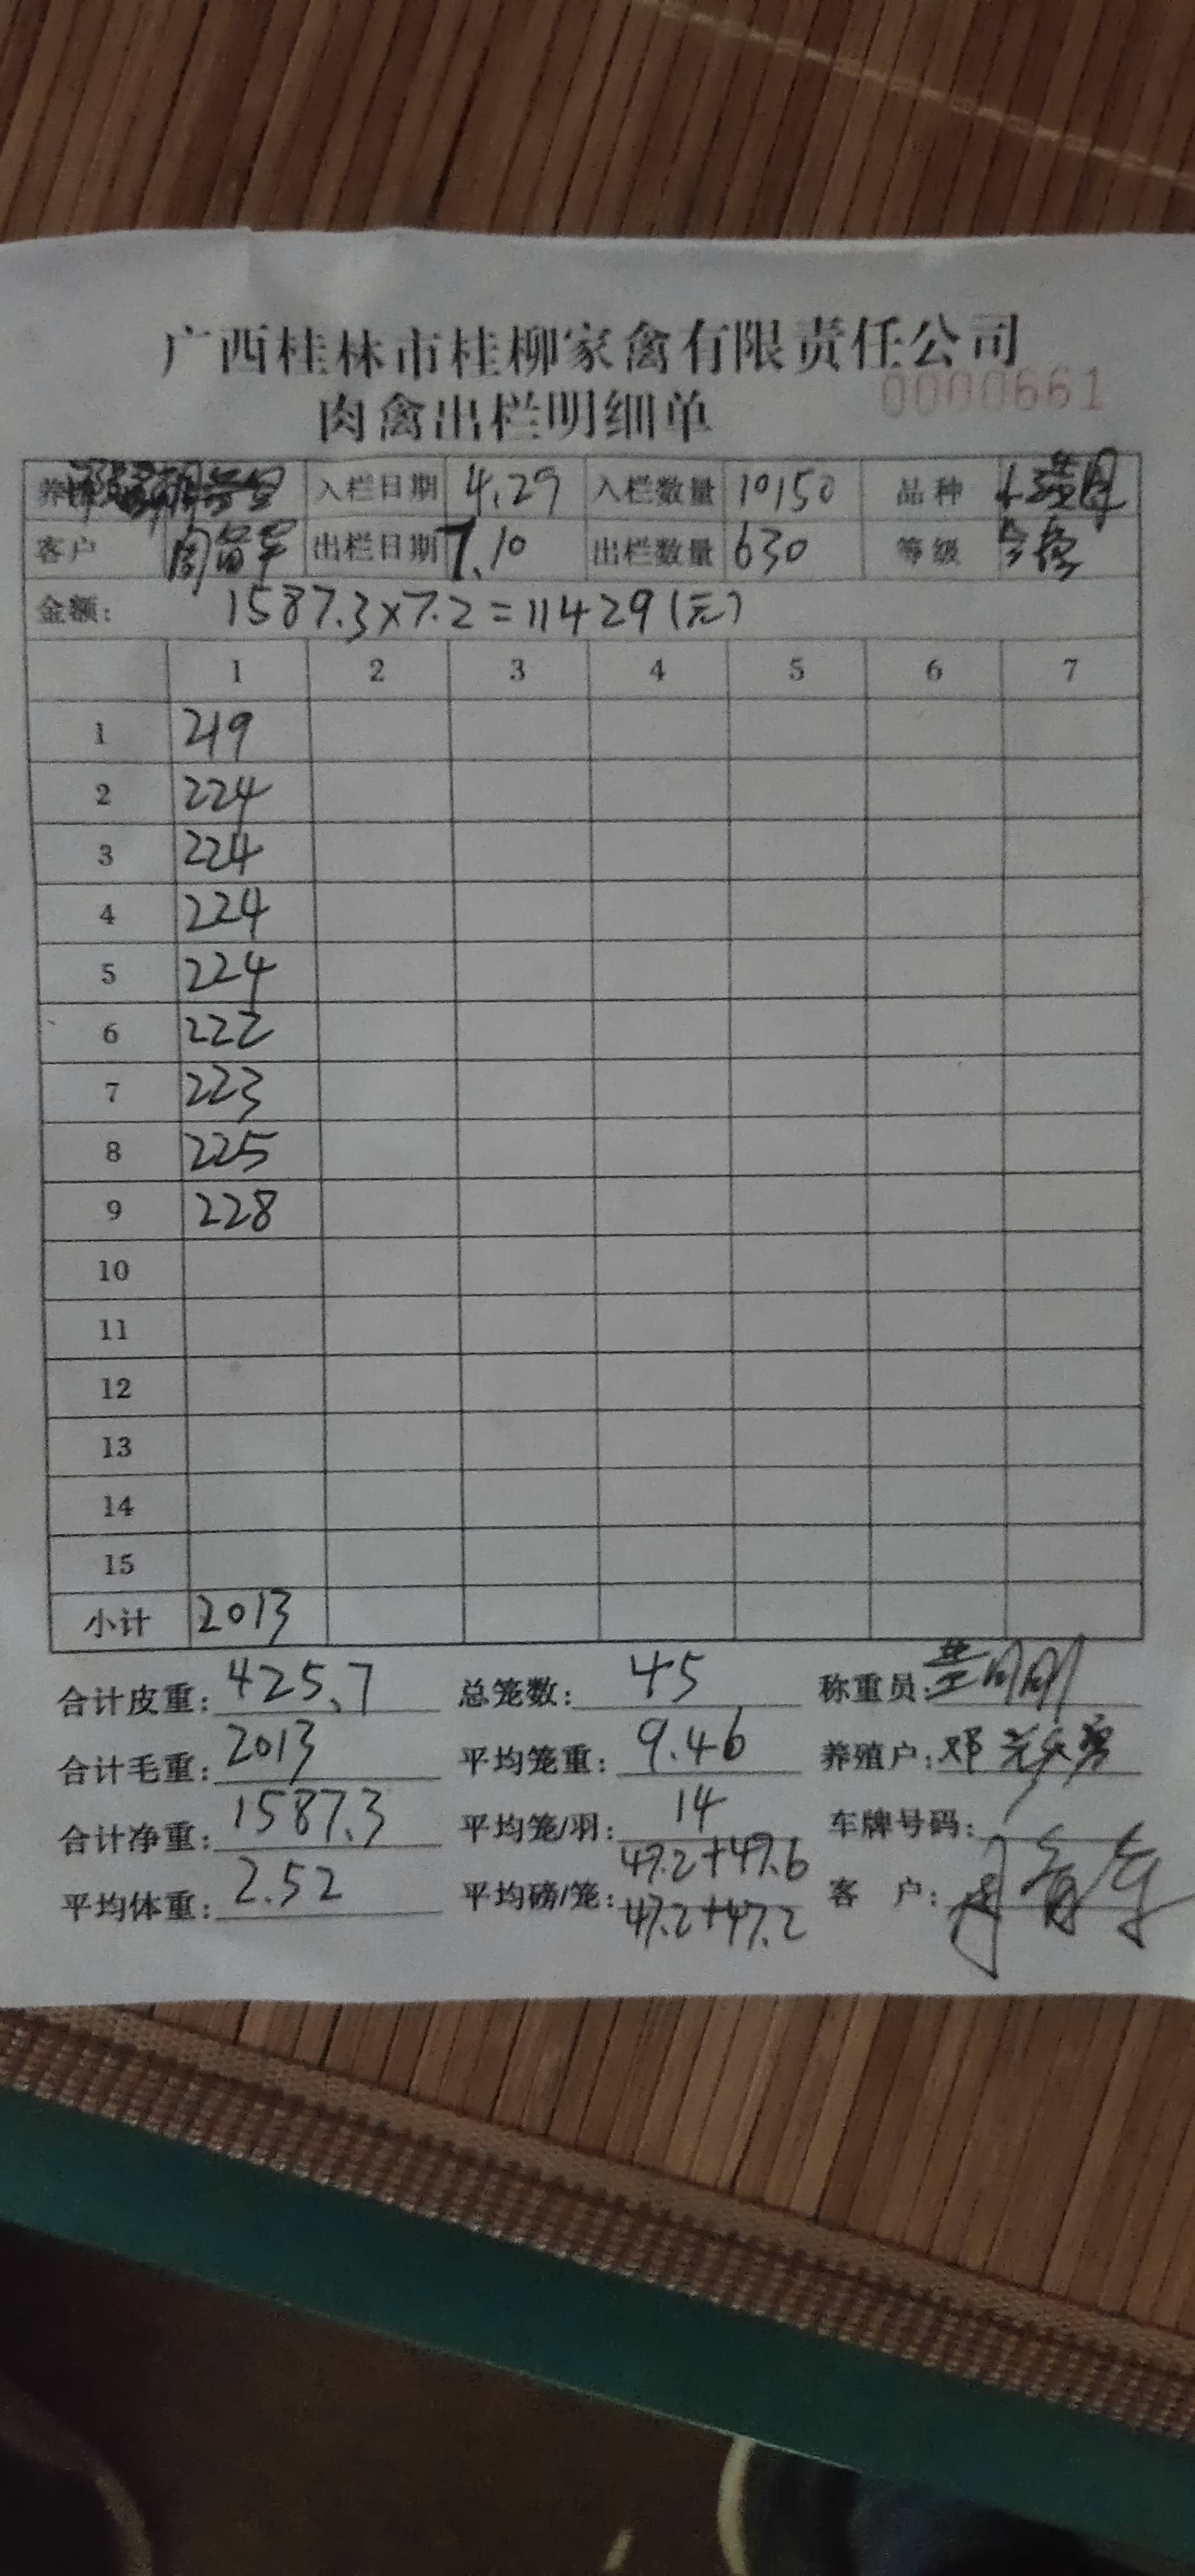 广西桂林市桂柳家禽有限责任公司
肉禽出栏明细单 0000661
入栏日期 4.29 入栏数量 10150 品种
客户 出栏日期 7.10 出栏数量 630 等级
金额: 1587.3×7.2=11429(元)
1 2 3 4 5 6 7
1 219
2 224
3 224
4 224
5 224
6 222
7 223
8 225
9 228
10
11
12
13
14
15
小计 2013
合计皮重: 425.7 总笼数: 45 称重员:
合计毛重: 2013 平均笼重: 9.46 养殖户: 邓
合计净重: 1587.3 平均笼/羽: 14 车牌号码:
平均体重: 2.52 平均磅/笼: 47.2+47.6 客 户:
47.2+47.2